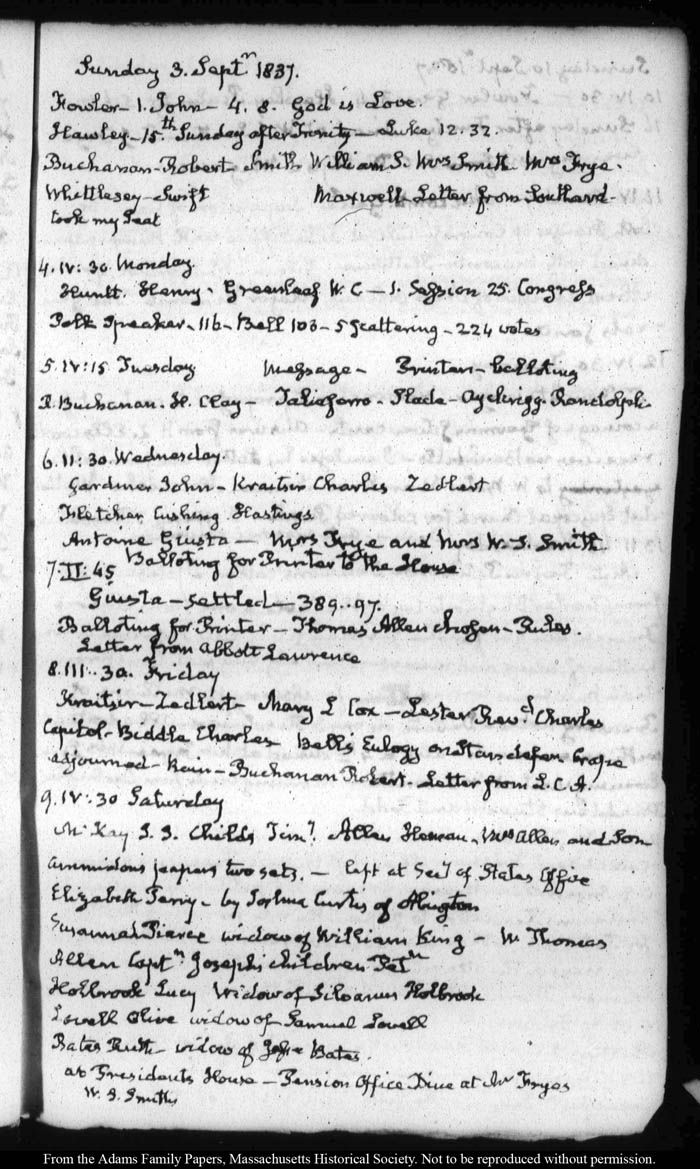 Sunday 3. Septr. 1837.
Fowler – 1. John – 4. 8. God is Love.
Hawley – 15.th Sunday after Trinity – Luke 12. 32.
Buchanan – Robert Smith William S. Mrs Smith Mrs Frye.
Whittlesey – Swift Maxwell Letter from Southard –
took my Seat
4. IV: 30. Monday
Huntt. Henry. Greenleaf W. C – 1. Session 25. Congress
Polk Speaker – 116 – Bell 103 – 5 Scattering – 224 votes
5. IV: 15 Tuesday Message – Printer – balloting
R. Buchanan. H. Clay – Taliaferro – Slade – Aycrigg Randolph
6. II: 30. Wednesday
Gardiner John – Kraitsir Charles Zedlert
Fletcher Cushing Hastings
Antoine Giusta – Mrs Frye and Mrs W. S. Smith
Balloting for Printer to the House
7: II: 45
Giusta – settled – 389..97.
Balloting for Printer – Thomas Allen chosen – Rules.
Letter from Abbott Lawrence
8. III.. 30. Friday
Kraitsir – Zedlert – Mary L Cox – Lester Revd. Charles
Capitol – Biddle Charles Bell's Eulogy on
adjourned – Rain – Buchanan Robert. Letter from L. C. A.
9. IV: 30 Saturday
McKay S. S. Childs Timy. Allen Heman, Mrs Allen and Son
Commissions papers two sets. – left at Secy of States Office
Elizabeth Terry – by Joshua Curtis of Abington
Susannah Pierce widow of William King – W Thomas
Allen Captn Joseph's children
Holbrook Lucy Widow of Silvanus Holbrook
Lowell Olive widow of Samuel Lowell
Bates Ruth – widow of Bates.
at Presidents House – Pension Office Dine at Mr Fryes
W. S. Smiths
From the Adams Family Papers, Massachusetts Historical Society. Not to be reproduced without permission.